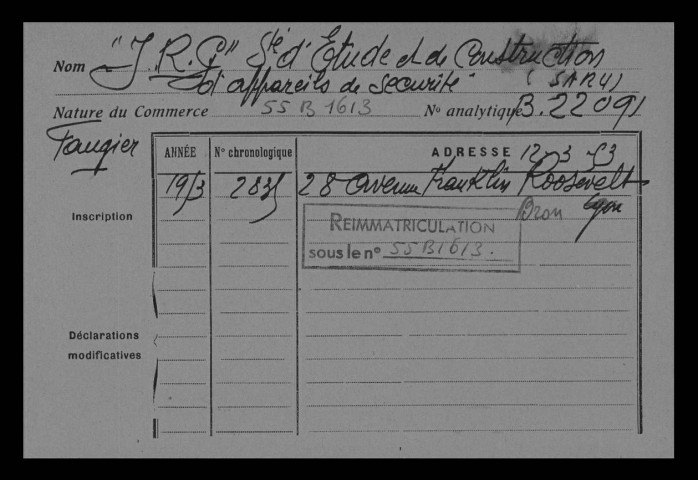 Nom "J.R.C" Sté d'Etude et de Construction
d'appareils de securité" (SARL)
Nature du Commerce 55 B 1613 No analytique B.22091
Faugier
ANNÉE No chronologique ADRESSE 12-3 53
2835 28 avenue Franklin Roosevelt
Bron Lyon
Inscription
REIMMATRICULATION
sous le no 55B1613.
Déclarations
modificatives